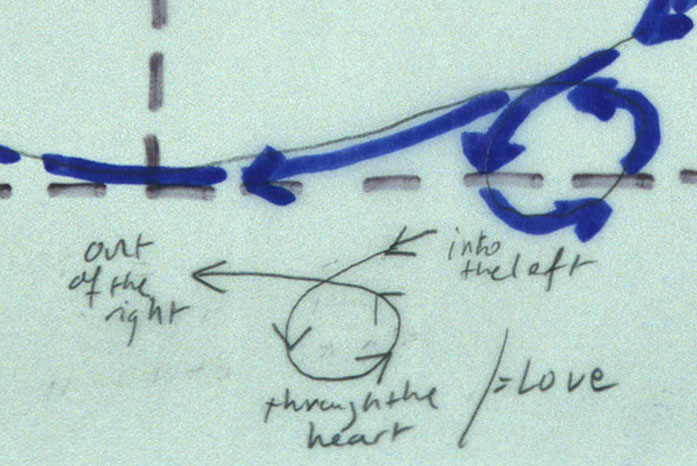 out
of the
right
into
the left
through the
heart
/=Love